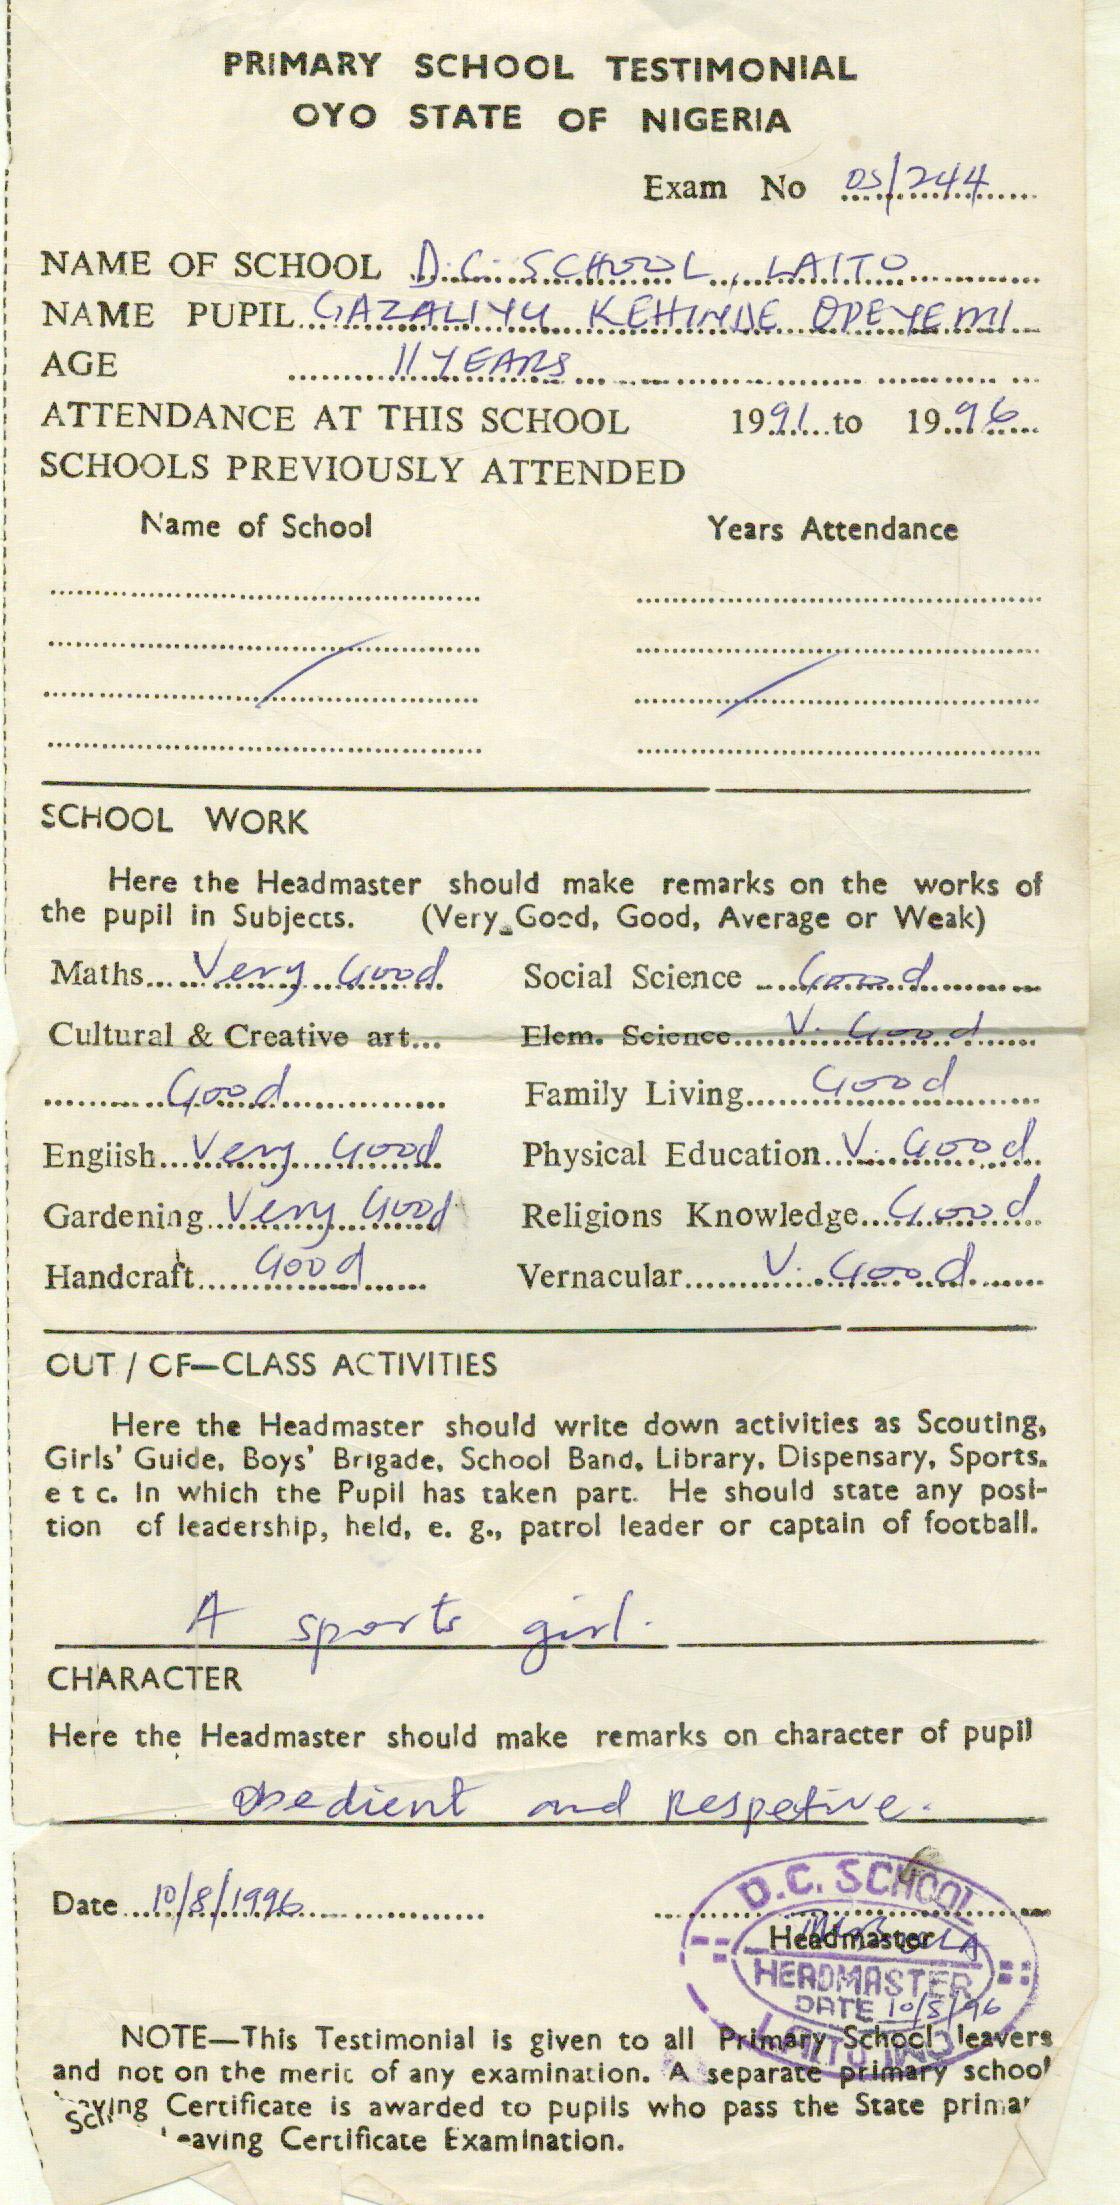 PRIMARY SCHOOL TESTIMONIAL
OYO STATE OF NIGERIA
Exam No 05/244
NAME OF SCHOOL D.C. SCHOOL, LAITO
NAME PUPIL GAZALIYU KEHINDE OPEYEMI
AGE 11 YEARS
ATTENDANCE AT THIS SCHOOL 1991 to 1996
SCHOOLS PREVIOUSLY ATTENDED
Name of School Years Attendance
SCHOOL WORK
Here the Headmaster should make remarks on the works of
the pupil in Subjects. (Very Good, Good, Average or Weak)
Maths Very Good Social Science Good
Cultural & Creative art Elem. Science V. Good
Good Family Living Good
Engiish Very Good Physical Education V. Good
Gardening Very Good Religions Knowledge Good
Handcraft Good Vernacular V. Good
OUT / OF—CLASS ACTIVITIES
Here the Headmaster should write down activities as Scouting,
Girls' Guide, Boys' Brigade, School Band, Library, Dispensary, Sports.
e t c. In which the Pupil has taken part. He should state any posi-
tion of leadership, held, e. g., patrol leader or captain of football.
A sports girl.
CHARACTER
Here the Headmaster should make remarks on character of pupil
Obedient and Respetive.
Date 10/8/1996
D.C. SCHOOL
Headmaster
HEADMASTER
DATE 10/5/96
LAITO
NOTE—This Testimonial is given to all Primary School leavers
and not on the meric of any examination. A separate primary school
Certificate is awarded to pupils who pass the State
eaving Certificate Examination.